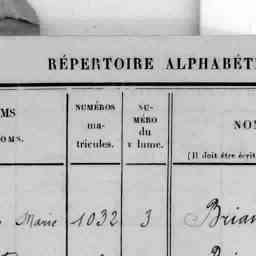 RÉPERTOIRE ALPHABÉT
MS
OMS.
NUMÉROS
ma-
tricules.
NU-
MÉRO
du
v lume.
NO
(Il doit être écrit
Marie 1032 3 Brian